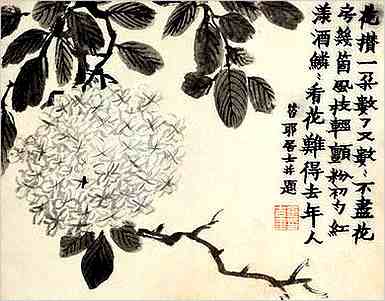 花攢一朵數了又數〻不盡花
房幾箇風枝輕顫粉初勻紅
漾酒鱗〻看花難得去年人
昔耶居士并題